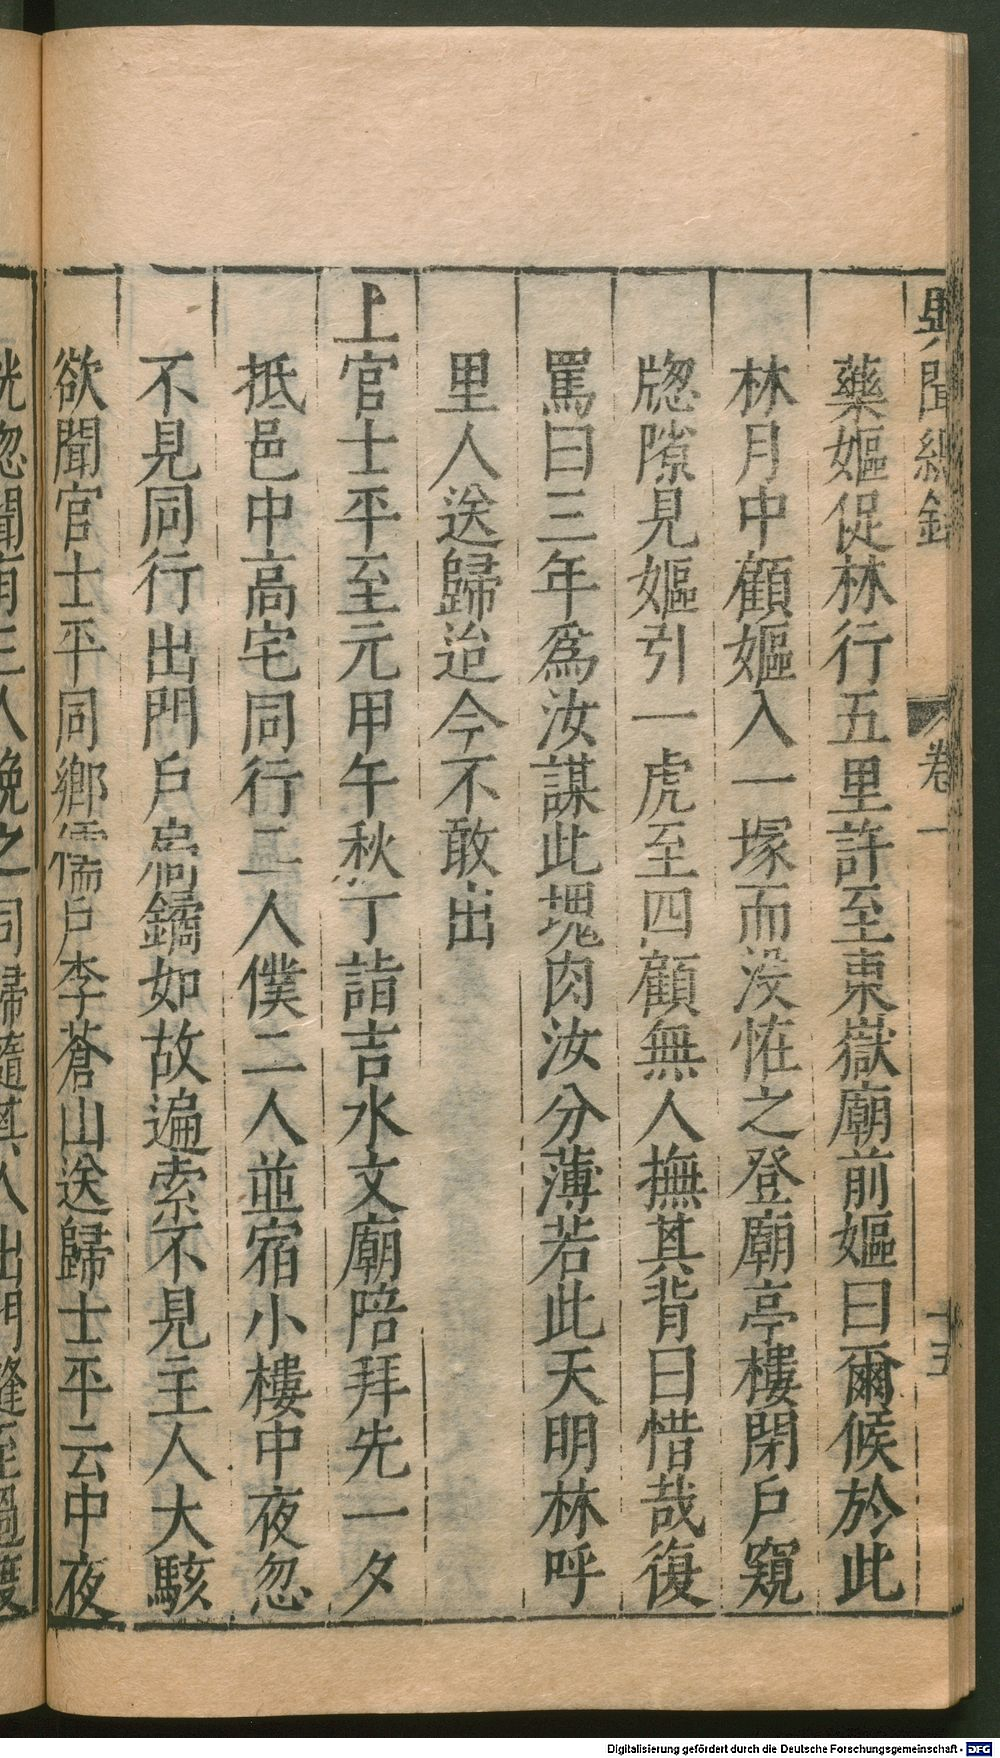 異聞總錄
卷一
十五
藥嫗促林行五里許至東嶽廟前嫗曰爾候於此
林月中顧嫗入一塚而没恠之登廟亭樓閉戶窺
牕隙見嫗引一虎至四顧無人撫其背曰惜哉復
罵曰三年為汝謀此塊肉汝分薄若此天明林呼
里人送歸迨今不敢出
上官士平至元甲午秋丁詣吉水文廟陪拜先一夕
抵邑中高宅同行二人僕二人並宿小樓中夜忽
不見同行出門戶扃鐍如故遍索不見主人大駭
欲聞官士平同鄉儒戶李蒼山送歸士平云中夜
恍惚聞有三人晚之同歸隨其人出門縫至過雙
Digitalisierung gefördert durch die Deutsche Forschungsgemeinschaft - DFG